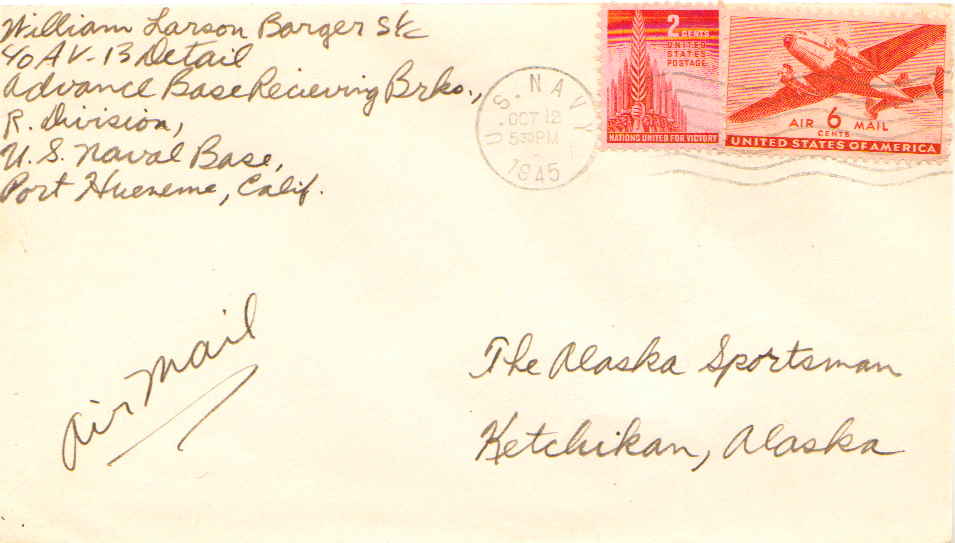 William Larson Barger S1/c
40 AV-13 Detail
Advance Base Recieving Brks.,
R. Division,
U.S. Naval Base,
Port Hueneme, Calif.
U.S. NAVY
OCT 12
5 30 PM
1945
2 CENTS
UNITED
STATES
POSTAGE
NATIONS UNITED FOR VICTORY
AIR 6 MAIL
CENTS
UNITED STATES OF AMERICA
Air Mail
The Alaska Sportsman
Ketchikan, Alaska